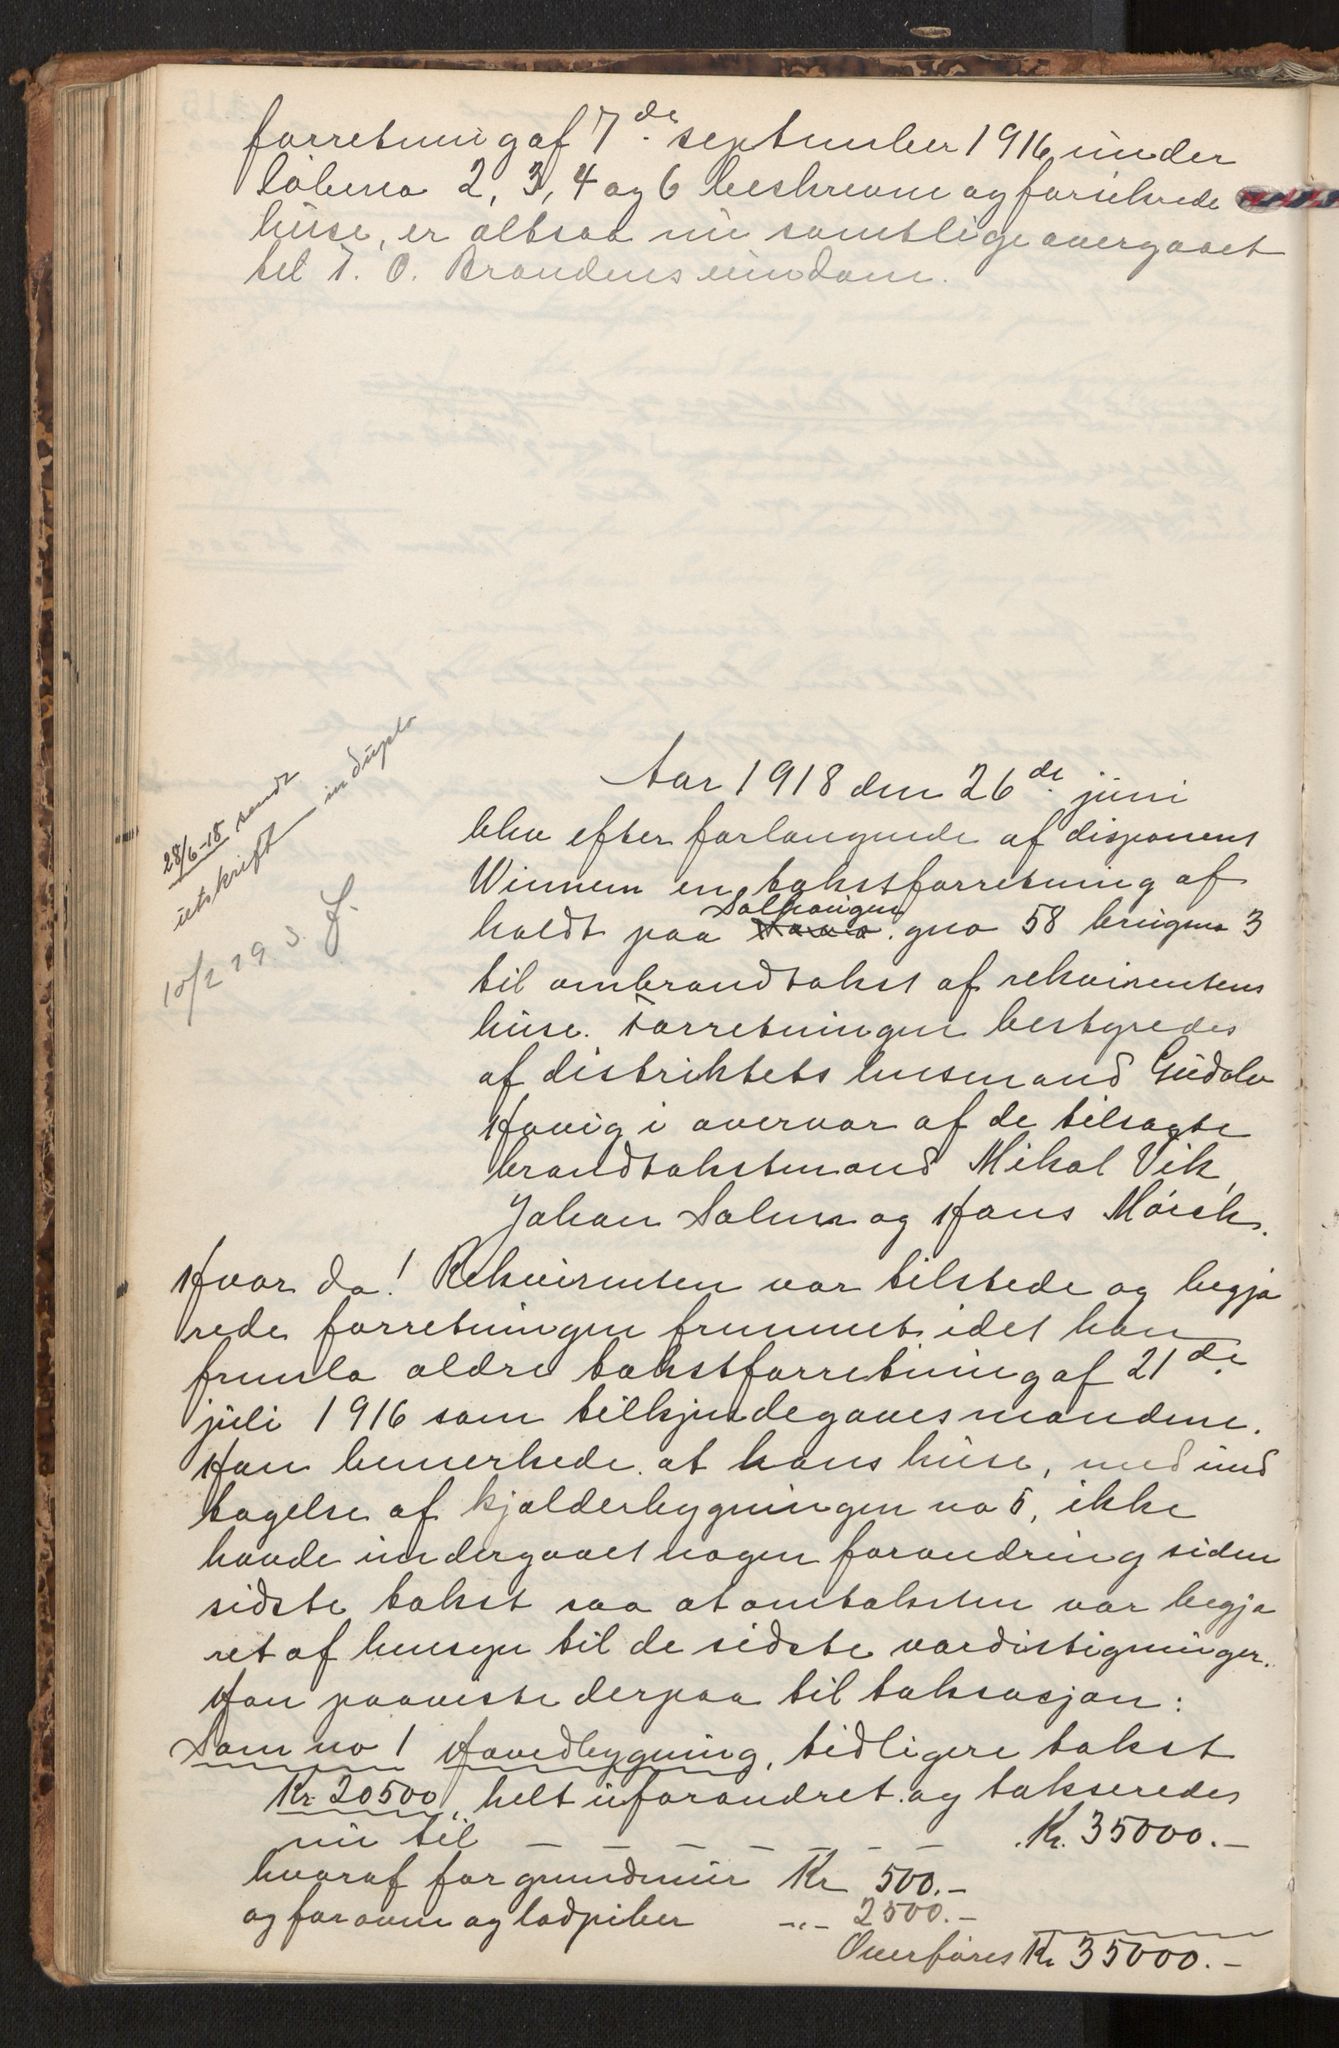 forretning af 7de september 1916 under
löbeno 2, 3, 4 og 6 beskrevne og forsikrede
huse, er altsaa nu samtlige overgaaet
til T. O. Brandens eiendom.
28/6-18 sendt
utskrift in duplo
10/2 29.
Aar 1918 den 26de juni
blev efter forlangende af disponent
Winnem en takstforretning af
Solhaugen
holdt paa gno 58 brugsno 3
til ombrandtakst af rekvirentens
huse. Forretningen bestyredes
af distriktets lensmand Gudolv
Havig i overvær af de tilsagte
brandtakstmænd Mikal Vik,
Johan Salen og Hans Mörch.
Hvor da! Rekvirenten var tilstede og begjæ
rede forretningen fremmet idet han
fremla ældre takstforretning af 21de
juli 1916 som tilkjendegaves mændene.
Han bemerkede at hans huse, med und
tagelse af kjælderbygningen no 5, ikke
havde undergaaet nogen forandring siden
sidste takst saa at omtaksten var begjæ
ret af hensyn til de sidste værdistigninger.
Han paaviste derpaa til taksasjon:
Som no 1 Hovedbygning, tidligere takst
Kr. 20500, helt uforandret og takseredes
nu til — — — — — — — Kr. 35000.—
hvoraf for grundmur Kr 500.—
og for ovne og ladpiber -"- 2500.—
Överföres Kr 35000.—